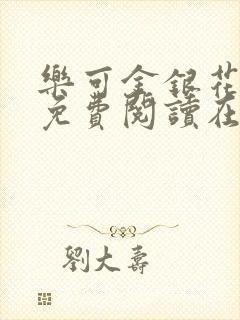 樂可金銀花
免費閱讀在
劉大壽